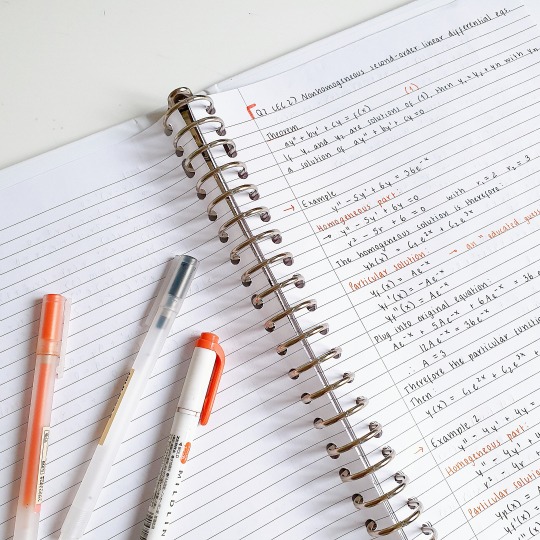 Q7 (§6.2) Nonhomogeneous second-order linear differential eqs.
Theorem
ay" + by' + cy = f(x) (1)
If y₁ and y₂ are solutions of (1), then y₁ = y₂ + yn with yn
a solution of ay" + by' + cy = 0
→ Example
y" - 5y' + 6y = 36e⁻ˣ
Homogeneous part:
→ y" - 5y' + 6y = 0
r² - 5r + 6 = 0 with r₁ = 2 r₂ = 3
The homogeneous solution is therefore:
yh(x) = C₁e²ˣ + C₂e³ˣ
Particular solution → an "educated guess
yp(x) = Ae⁻ˣ
yp'(x) = -Ae⁻ˣ
yp"(x) = Ae⁻ˣ
Plug into original equation
Ae⁻ˣ + 5Ae⁻ˣ + 6Ae⁻ˣ = 36e
12Ae⁻ˣ = 36e⁻ˣ
∴ A = 3
Therefore the particular function
Then
y(x) = C₁e²ˣ + C₂e³ˣ +
→ Example 2
y" - 4y' + 4y =
Homogeneous part:
y" - 4y' + 4y
r² - 4r +
Particular solution
yp(x) =
yp'(x) =
MILDLINER